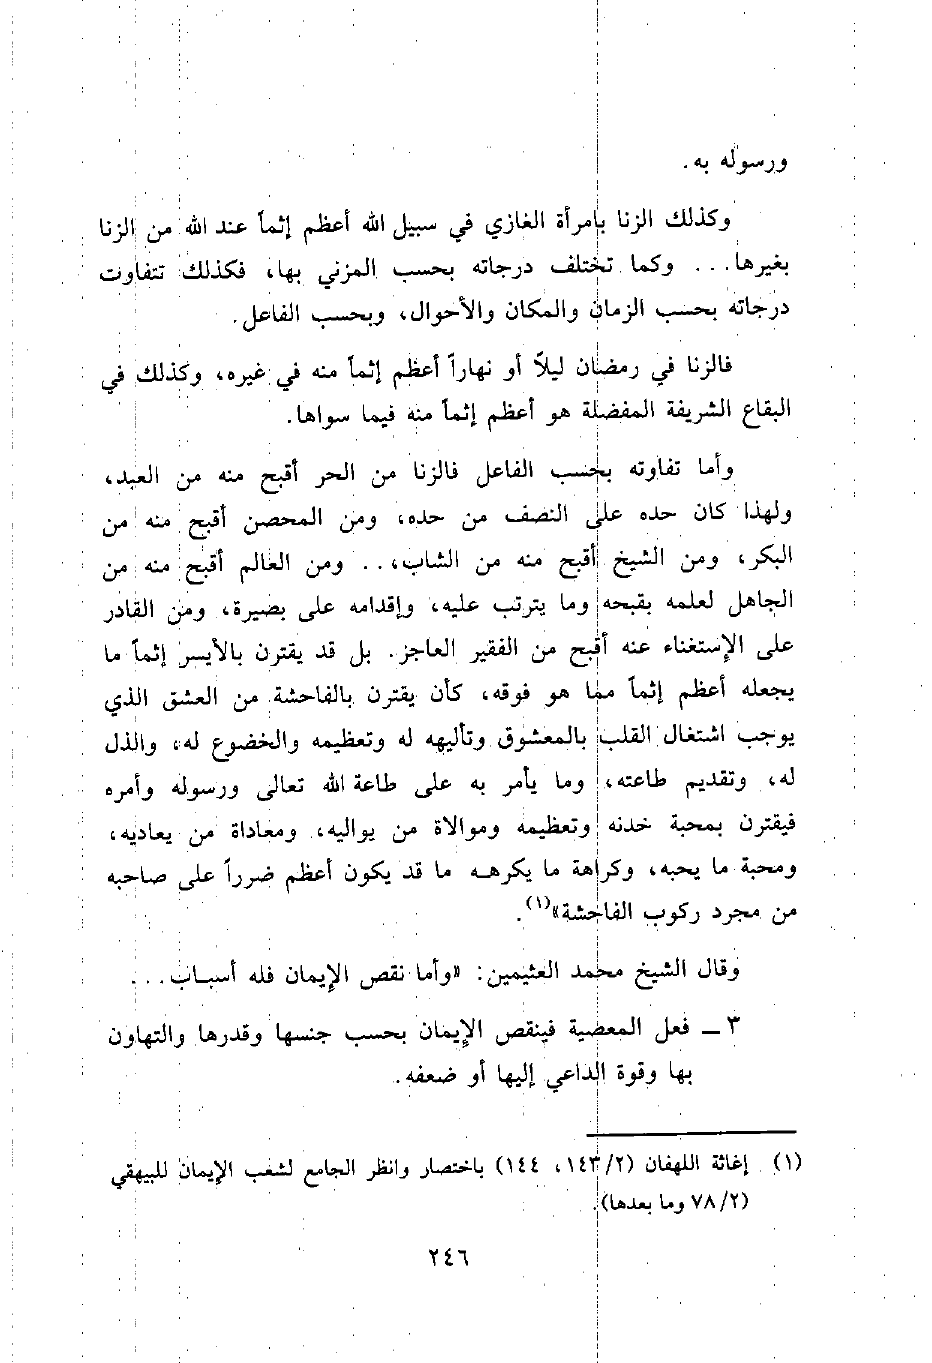 ورسوله به.
وكذلك الزنا بامرأة الغازي في سبيل الله أعظم إثماً عند الله من الزنا
بغيرها... وكما تختلف درجاته بحسب المزني بها، فكذلك تتفاوت
درجاته بحسب الزمان والمكان والأحوال، وبحسب الفاعل.
فالزنا في رمضان ليلاً أو نهاراً أعظم إثماً منه في غيره، وكذلك في
البقاع الشريفة المفضلة هو أعظم إثماً منه فيما سواها.
وأما تفاوته بحسب الفاعل فالزنا من الحر أقبح منه من العبد،
ولهذا كان حده على النصف من حده، ومن المحصن أقبح منه من
البكر، ومن الشيخ أقبح منه من الشاب،.. ومن العالم أقبح منه من
الجاهل لعلمه بقبحه وما يترتب عليه، وإقدامه على بصيرة، ومن القادر
على الإستغناء عنه أقبح من الفقير العاجز. بل قد يقترن بالأيسر إثماً ما
يجعله أعظم إثماً مما هو فوقه، كأن يقترن بالفاحشة من العشق الذي
يوجب اشتغال القلب بالمعشوق وتأليهه له وتعظيمه والخضوع له، والذل
له، وتقديم طاعته، وما يأمر به على طاعة الله تعالى ورسوله وأمره
فيقترن بمحبة خدنه وتعظيمه وموالاة من يواليه، ومعاداة من يعاديه،
ومحبة ما يحبه، وكراهة ما يكرهه ما قد يكون أعظم ضرراً على صاحبه
من مجرد ركوب الفاحشة»(١).
وقال الشيخ محمد العثيمين: «وأما نقص الإيمان فله أسباب...
٣ ــ فعل المعصية فينقص الإيمان بحسب جنسها وقدرها والتهاون
بها وقوة الداعي إليها أو ضعفه.
(١) إغاثة اللهفان (١٤٣/٢، ١٤٤) باختصار وانظر الجامع لشعب الإيمان للبيهقي
(٧٨/٢ وما بعدها).
٢٤٦